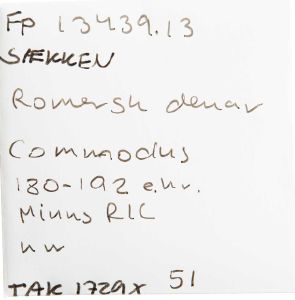 FP 13439.13
SÆKKEN
Romersk denar
Commodus
180-192 e.kr.
Minus RIC
TAK 1729x 51